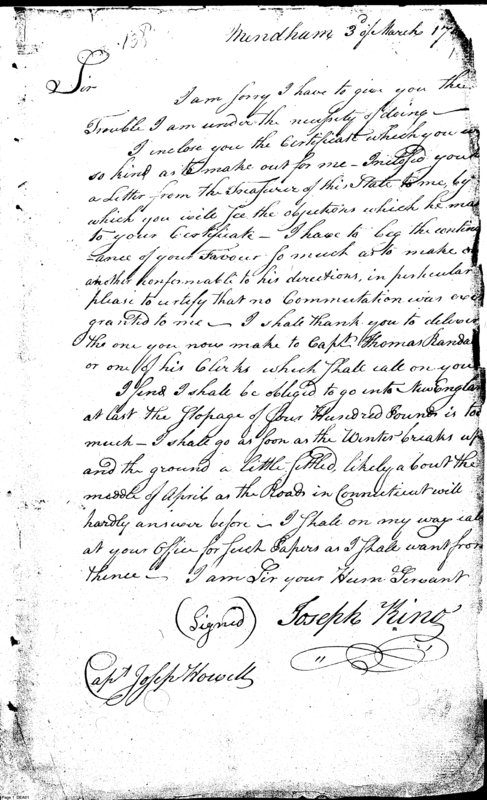 138
Mendham 3d of March 17
Sir
I am sorry I have to give you the
Trouble I am under the necessity of doing —
I inclose you the Certificate which you
so kind as to make out for me — Inclosed you
a Letter from the Treasurer of this State to me, by
which you will See the objections which he ma
to your Certificate — I have to beg the contin
-ance of your Favour so much as to make
another conformable to his directions, in perticular
please to certify that no Commutation was ever
granted to me — I shall thank you to deliver
the one you now make to Capt. Thomas Randa
or one of his Clerks which shall call on you
I find I shall be obliged to go into New Englan
at last the Stopage of four Hundred Pounds is too
much — I shall go as soon as the Winter breaks up
and the ground a little Settled, likely about the
middle of April as the Roads in Connecticut will
hardly answer before — I shall on my way call
at your Office for such Papers as I shall want from
thence — I am Sir your Hum. Servant
(Signed) Joseph King
Capt. Joseph Howell
Page 1